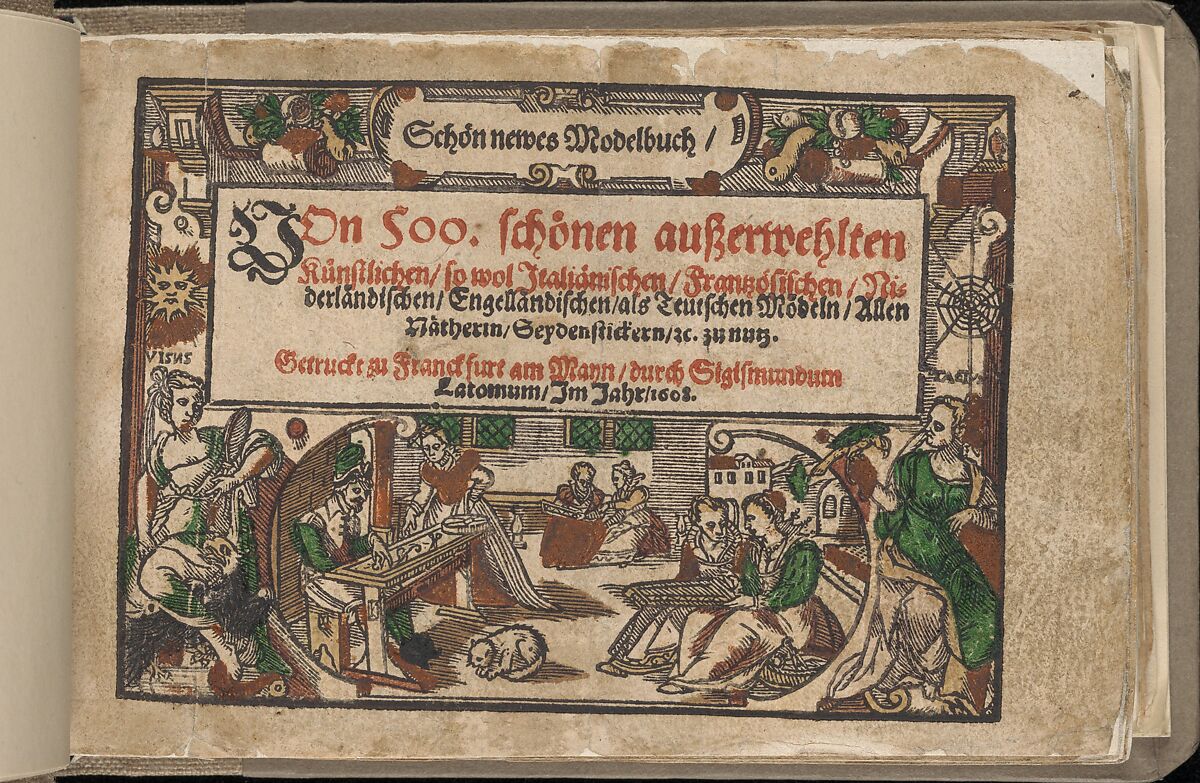 Schön newes Modelbuch /
VOn 500. schönen außerwehlten
Künstlichen / so wol Italiänischen / Frantzösischen / Ni-
derländischen / Engelländischen / als Teutschen Mödeln / Allen
Nätherin / Seydenstickern / ꝛc. zu nutz.
Getruckt zu Franckfurt am Mayn / durch Sigismundum
Latomum / Im Jahr / 1608.
VISUS
TACTUS